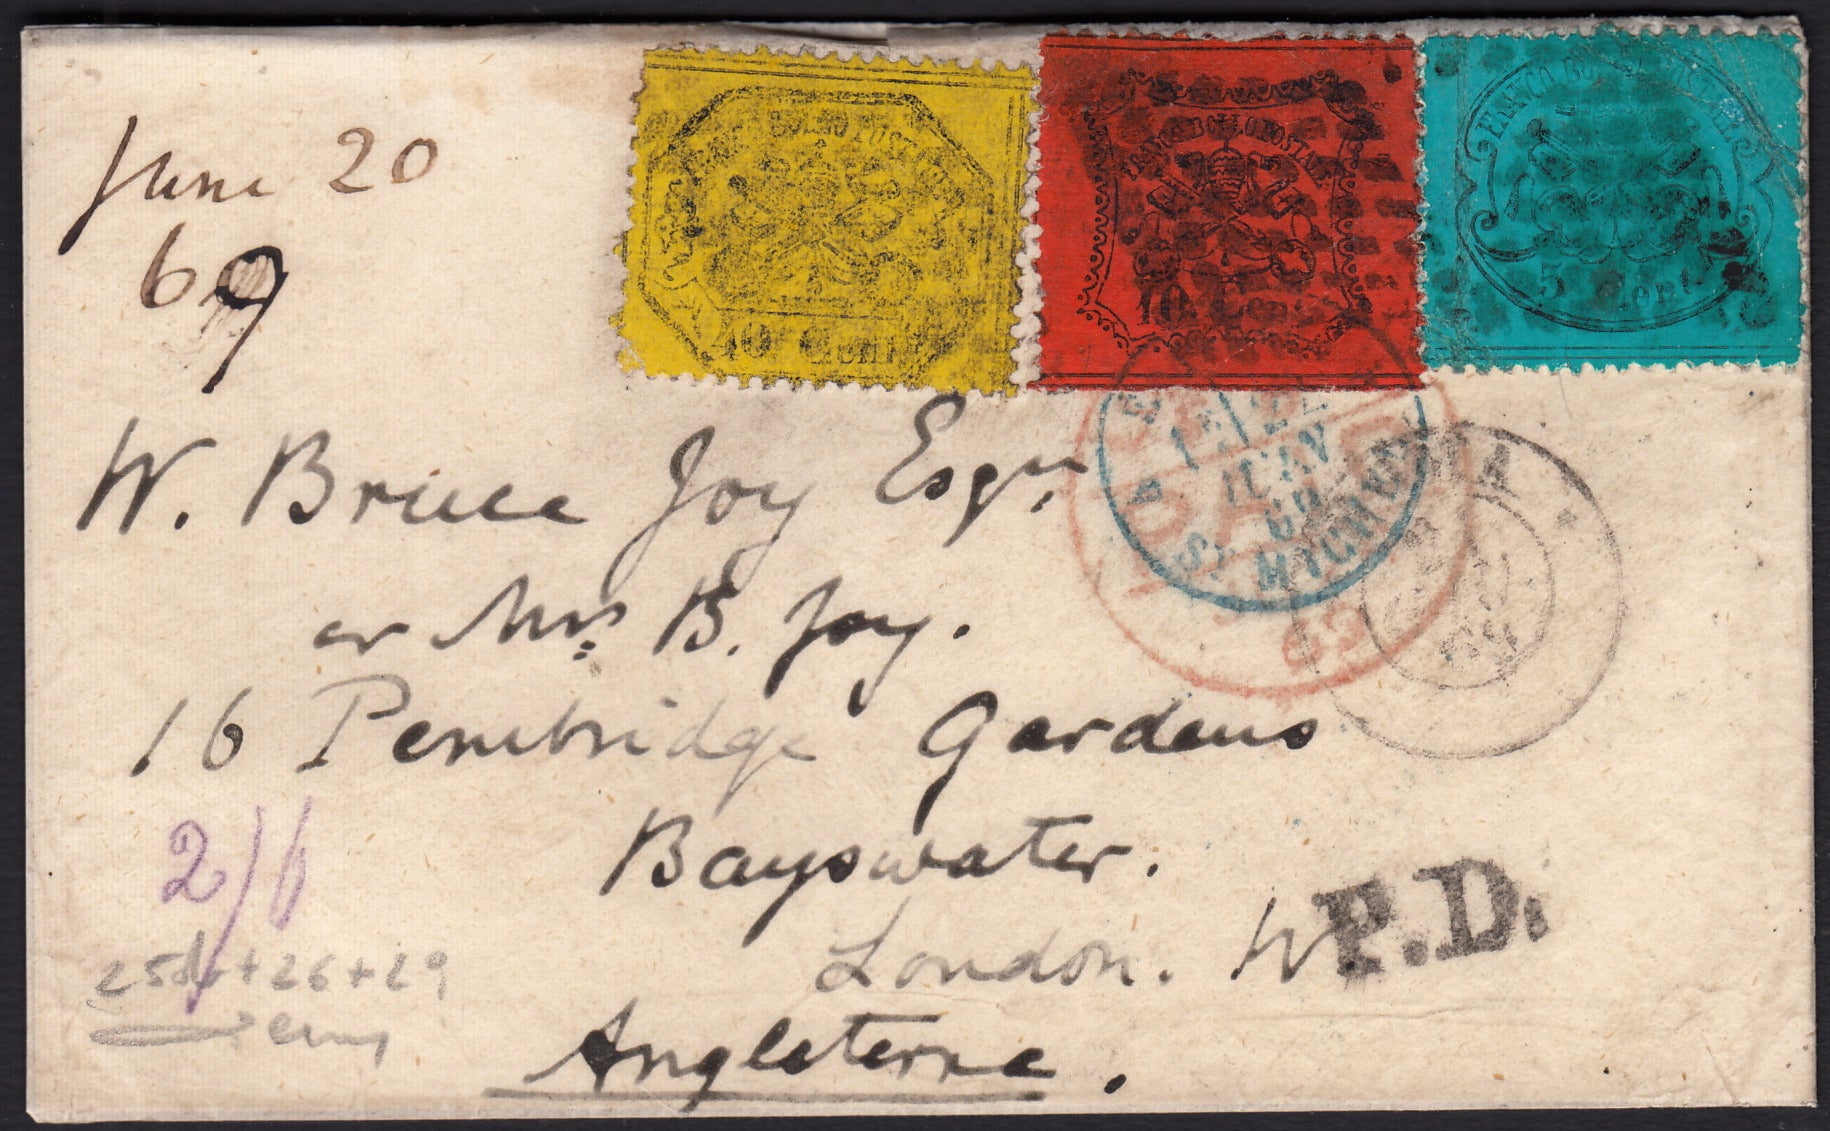 June 20
69
FRANCO BOLLO POSTALE
40 Cent
FRANCO BOLLO POSTALE
10 Cent
FRANCO BOLLO POSTALE
5 Cent
W. Bruce Joy Esqre,
or Mrs B. Joy.
16 Pembridge Gardens
Bayswater.
London. W
Angleterre.
P.D.
22
JUIN
69
ST MICHEL
PAID
69
69
2/6
+ 26 + 29